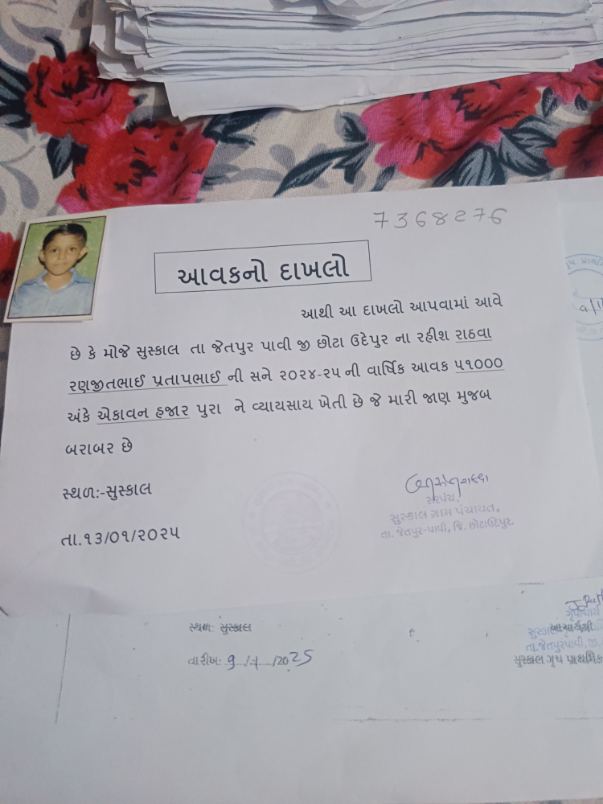 7368276
આવકનો દાખલો
આથી આ દાખલો આપવામાં આવે
છે કે મોજે સુસ્કાલ તા જેતપુર પાવી જી છોટા ઉદેપુર ના રહીશ રાઠવા
રણજીતભાઈ પ્રતાપભાઈ ની સને ૨૦૨૪-૨૫ ની વાર્ષિક આવક ૫૧૦૦૦
અંકે એકાવન હજાર પુરા ને વ્યાયસાય ખેતી છે જે મારી જાણ મુજબ
બરાબર છે
સ્થળ:-સુસ્કાલ
સરપંચ,
સુસ્કાલ ગ્રામ પંચાયત,
તા.જેતપુર-પાવી, જિ. છોટાઉદેપુર
તા.૧૩/૦૧/૨૦૨૫
સ્થળ: સુસ્કાલ
આચાર્યશ્રી
તા.જેતપુરપાવી,જી.
તારીખ: 9/7/2025
સુસ્કાલ ગૃપ પ્રાથમિક